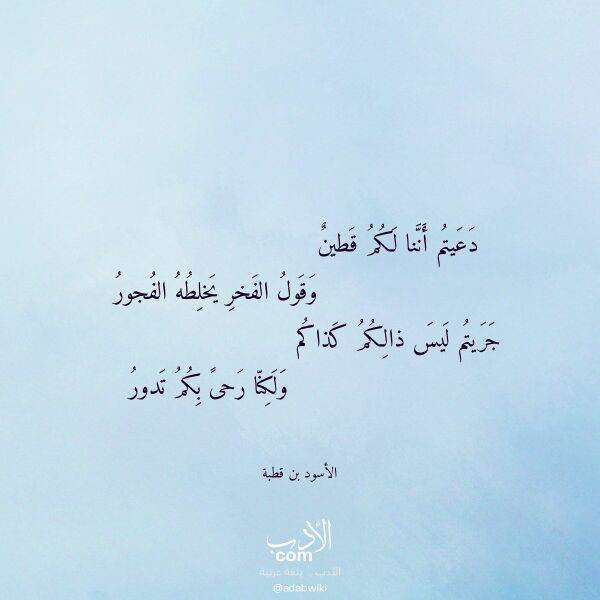 دَعَيتُم أَنَّنا لَكُمُ قَطينٌ
وَقَولُ الفَخرِ يَخلِطُهُ الفُجورُ
جَرَيتُم لَيسَ ذالِكُمُ كَذاكُم
وَلَكِنّا رَحىً بِكُمُ تَدورُ
الأسود بن قطبة
الأدب
com
الأدب .. بلغة عربية
@adabwiki